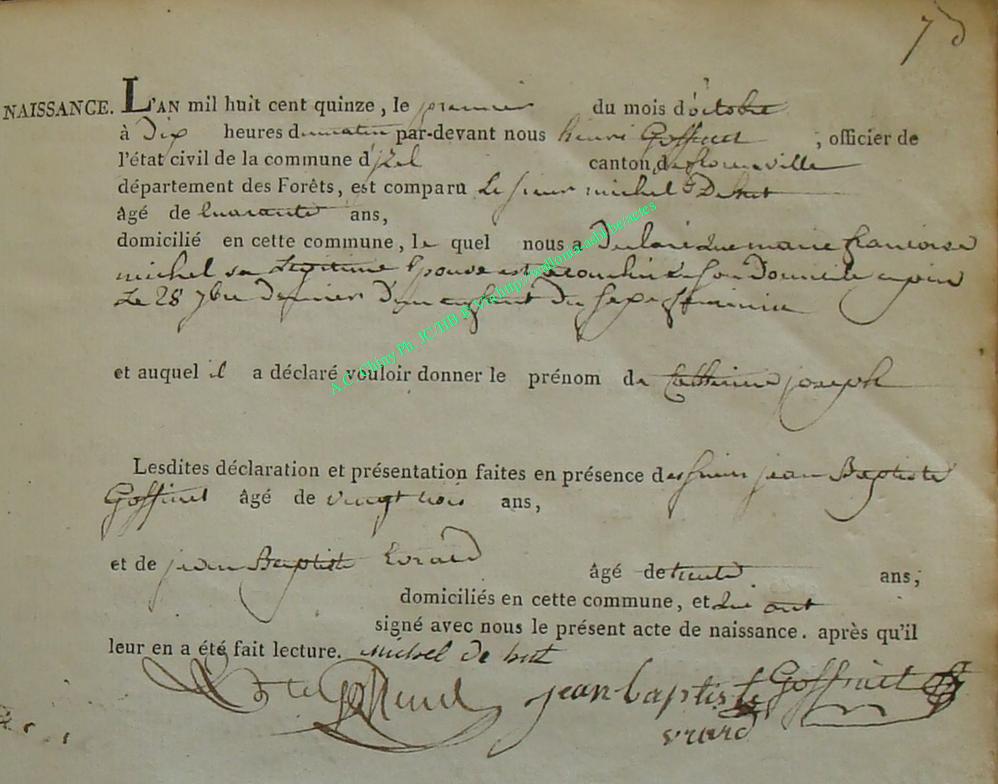 7 d
NAISSANCE. L'AN mil huit cent quinze, le premier du mois d'octobre
à Dix heures du matin par-devant nous henri Goffinet, officier de
l'état civil de la commune d'jzel canton de florenville
département des Forêts, est comparu Le sieur michel Dehut
âgé de quarante ans,
domicilié en cette commune, le quel nous a Declaré que marie francoise
michel sa Legitime Epouse est accouchée a son Domicile
Le 28 7bre Dernier D'un enfant Du sexe feminin
et auquel il a déclaré vouloir donner le prénom de Catherine joseph
Lesdites déclaration et présentation faites en présence des sieurs jean Baptiste
Goffinet âgé de vingt trois ans,
et de jean Baptiste Evrard âgé de trente ans,
domiciliés en cette commune, et qui ont
signé avec nous le présent acte de naissance. après qu'il
leur en a été fait lecture. michel de hut
Goffinet jean baptiste Goffinet
vrard
A.C. Chiny Ph. JC/HB g via http://ardlom.asbl.be/actes